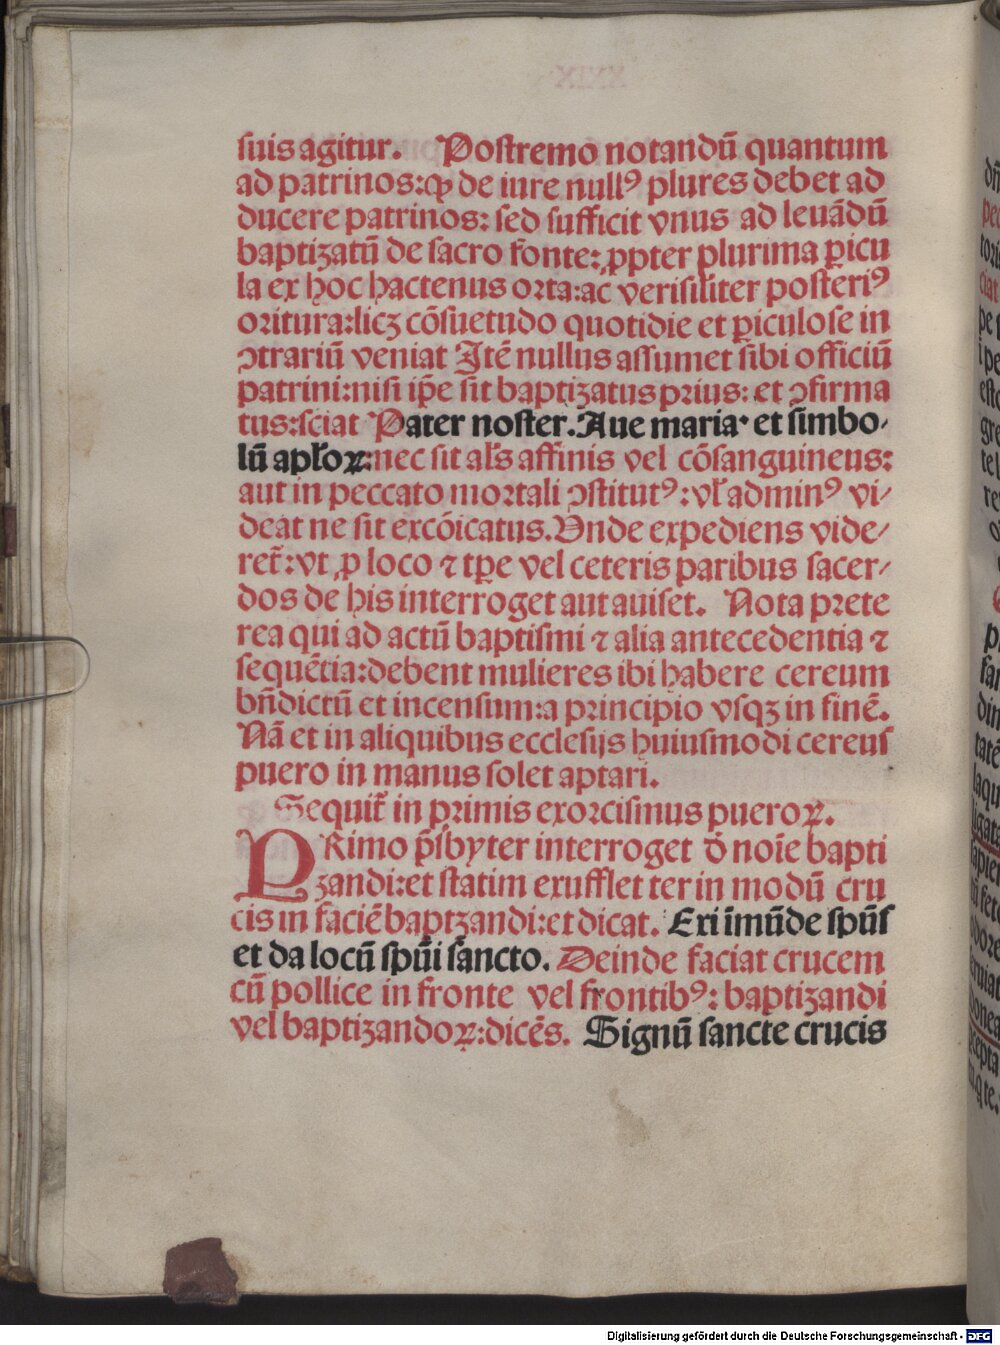 suis agitur. Postremo notandū quantum
ad patrinos: ꝙ de iure nullꝰ plures debet ad
ducere patrinos: sed sufficit vnus ad leuādū
baptizatū de sacro fonte: ꝓpter plurima ꝑicu
la ex hoc hactenus orta: ac verisiliter posteriꝰ
oritura: licꝫ cōsuetudo quotidie et ꝑiculose in
ꝯtrariū veniat Itē nullus assumet sibi officiū
patrini: nisi ip̄e sit baptizatus prius: et ꝯfirma
tus: sciat Pater noster. Aue maria. et simbo⸗
lū apl̄oꝝ: nec sit al̄s affinis vel cōsanguineus:
aut in peccato mortali ꝯstitutꝰ: vl̄ adminꝰ vi⸗
deat ne sit excōicatus. Vnde expediens vide⸗
ret̄: vt ꝓ loco ⁊ tꝑe vel ceteris paribus sacer⸗
dos de his interroget aut auiset. Nota prete
rea qui ad actū baptismi ⁊ alia antecedentia ⁊
sequētia: debent mulieres ibi habere cereum
bn̄dictū et incensum: a principio vsqꝫ in finē.
Nā et in aliquibus ecclesijs huiusmodi cereus
puero in manus solet aptari.
Sequit̄ in primis exorcismus pueroꝝ.
PRimo p̄sbyter interroget đ noīe bapti
zandi: et statim exufflet ter in modū cru
cis in faciē baptzandi: et dicat. Exi īmūde sp̄us
et da locū sp̄ui sancto. Deinde faciat crucem
cū pollice in fronte vel frontibꝰ: baptizandi
vel baptizandoꝝ: dicēs. Signū sancte crucis
Digitalisierung gefördert durch die Deutsche Forschungsgemeinschaft - DFG